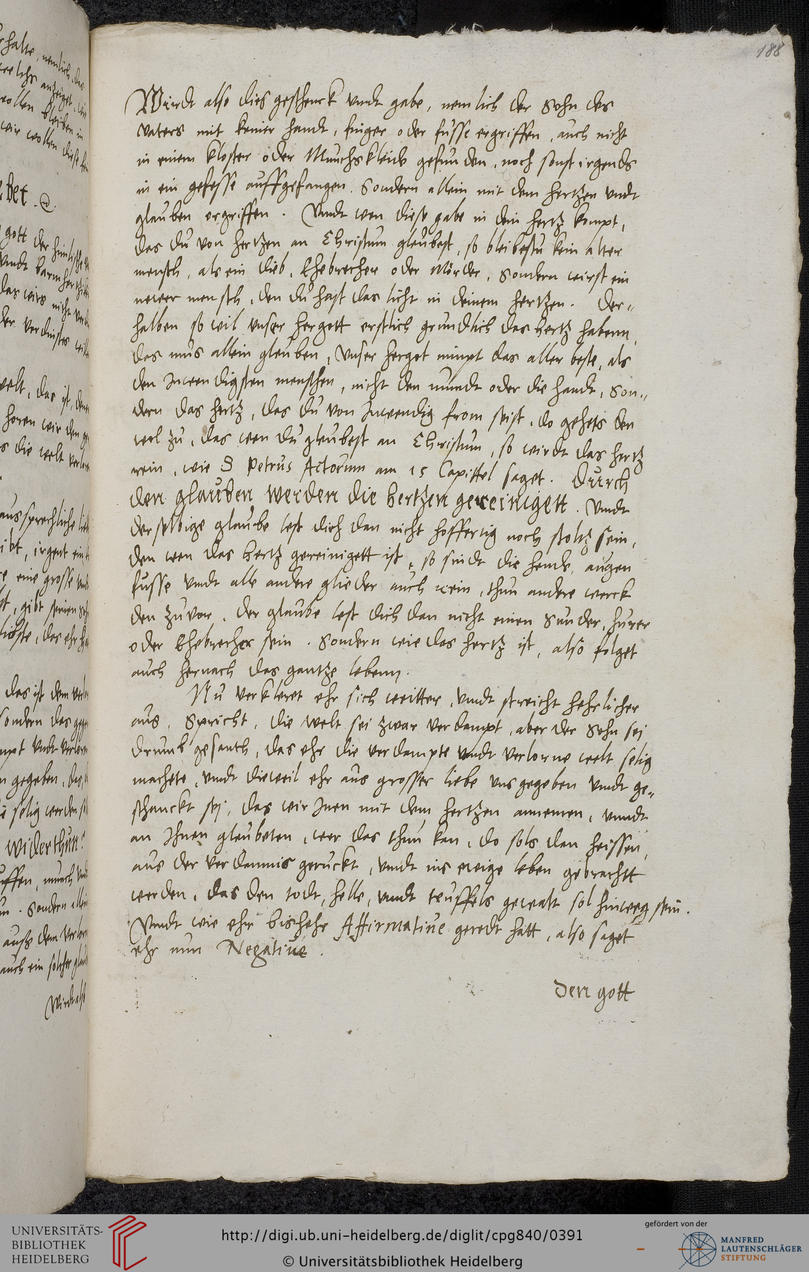 188
Wirdt also dies geschenck vndt gabe, nemlich der Sohn des
vaters mit keiner handt, finger oder fusse ergriffen, auch nicht
in einem kloster oder Munchskleide gefunden, noch sonst irgends
in ein gefesse auffgefangen. Sondern allein mit dem hertzen vndt
glauben ergriffen. Vndt wen diese gabe in dein hertz kompt,
das du von hertzen an Christum gleubest, so bleibestu kein alter
mensch, als ein dieb, Ehebrecher oder Mörder, Sondern wirst ein
newer mensch, den du hast das licht in deinem hertzen. Der-
halben so wil vnser hergott erstlich grundlich das hertz habenn,
das mus allein glauben, Vnser hergot nimpt das aller beste, als
den Inwendigsten menschen, nicht den mundt oder die handt, Son-
dern das hertz, das du von Inwendig from seist, do gehets den
wol zu, das wen du gleubest an Christum, so wirdt das hertz
rein, wie S Petrus Actorum am 15 Capittel saget. Durch
den glauben werden die hertzen gereinigett. Vndt
derselbige glaube lest dich dan nicht hoffertig noch stoltz sein,
den wen das hertz gereinigett ist, so sindt die hende, augen
fusse vndt alle andere glieder auch rein, thun andere werck
den zuvor, der glaube lest dich dan nicht einen Sunder, hurer
oder Ehebrecher sein. Sondern wie das hertz ist, also folget
auch hernach das gantze lebenn.
Nu verkleret ehr sich weitter, vndt streicht hehrlicher
aus, Spricht, die welt sei zwar verdampt, aber der Sohn sej
drumb gesanth, das ehr die verdampte vndt verlorne welt selig
machete, vndt dieweil ehr aus grosser liebe vns gegeben vndt ge-
schanckt sej, das wir Inen mit dem hertzen annemen, vnndt
an Ihnen gleubeten, wer das thun kan, do sols dan heissen,
aus der verdamnis geruckt, vndt ins ewige leben gebrachtt
werden, das den todt, helle, vndt teuffels gewalt sol hinweg sein.
Vnndt wie ehr bishehr Affirmatiue geredt hatt, also saget
ehr nun Negatiue.
den gott
UNIVERSITÄTS-
BIBLIOTHEK
HEIDELBERG
http://digi.ub.uni-heidelberg.de/diglit/cpg840/0391
© Universitätsbibliothek Heidelberg
gefördert von der
MANFRED
LAUTENSCHLÄGER
STIFTUNG